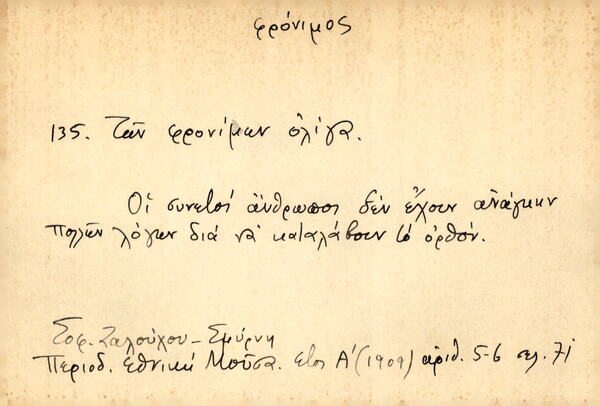 φρόνιμος
135. Τῶν φρονίμων ὀλίγα.
Οἱ συνετοί ἄνθρωποι δέν ἔχουν ἀνάγκην
πολλῶν λόγων διά νά καταλάβουν τό ὀρθόν.
Σοφ. Ζαλούχου - Σμύρνη
Περιοδ. Ἐθνική Μοῦσα. ἔτος Α' (1909) ἀριθ. 5-6 σελ. 71